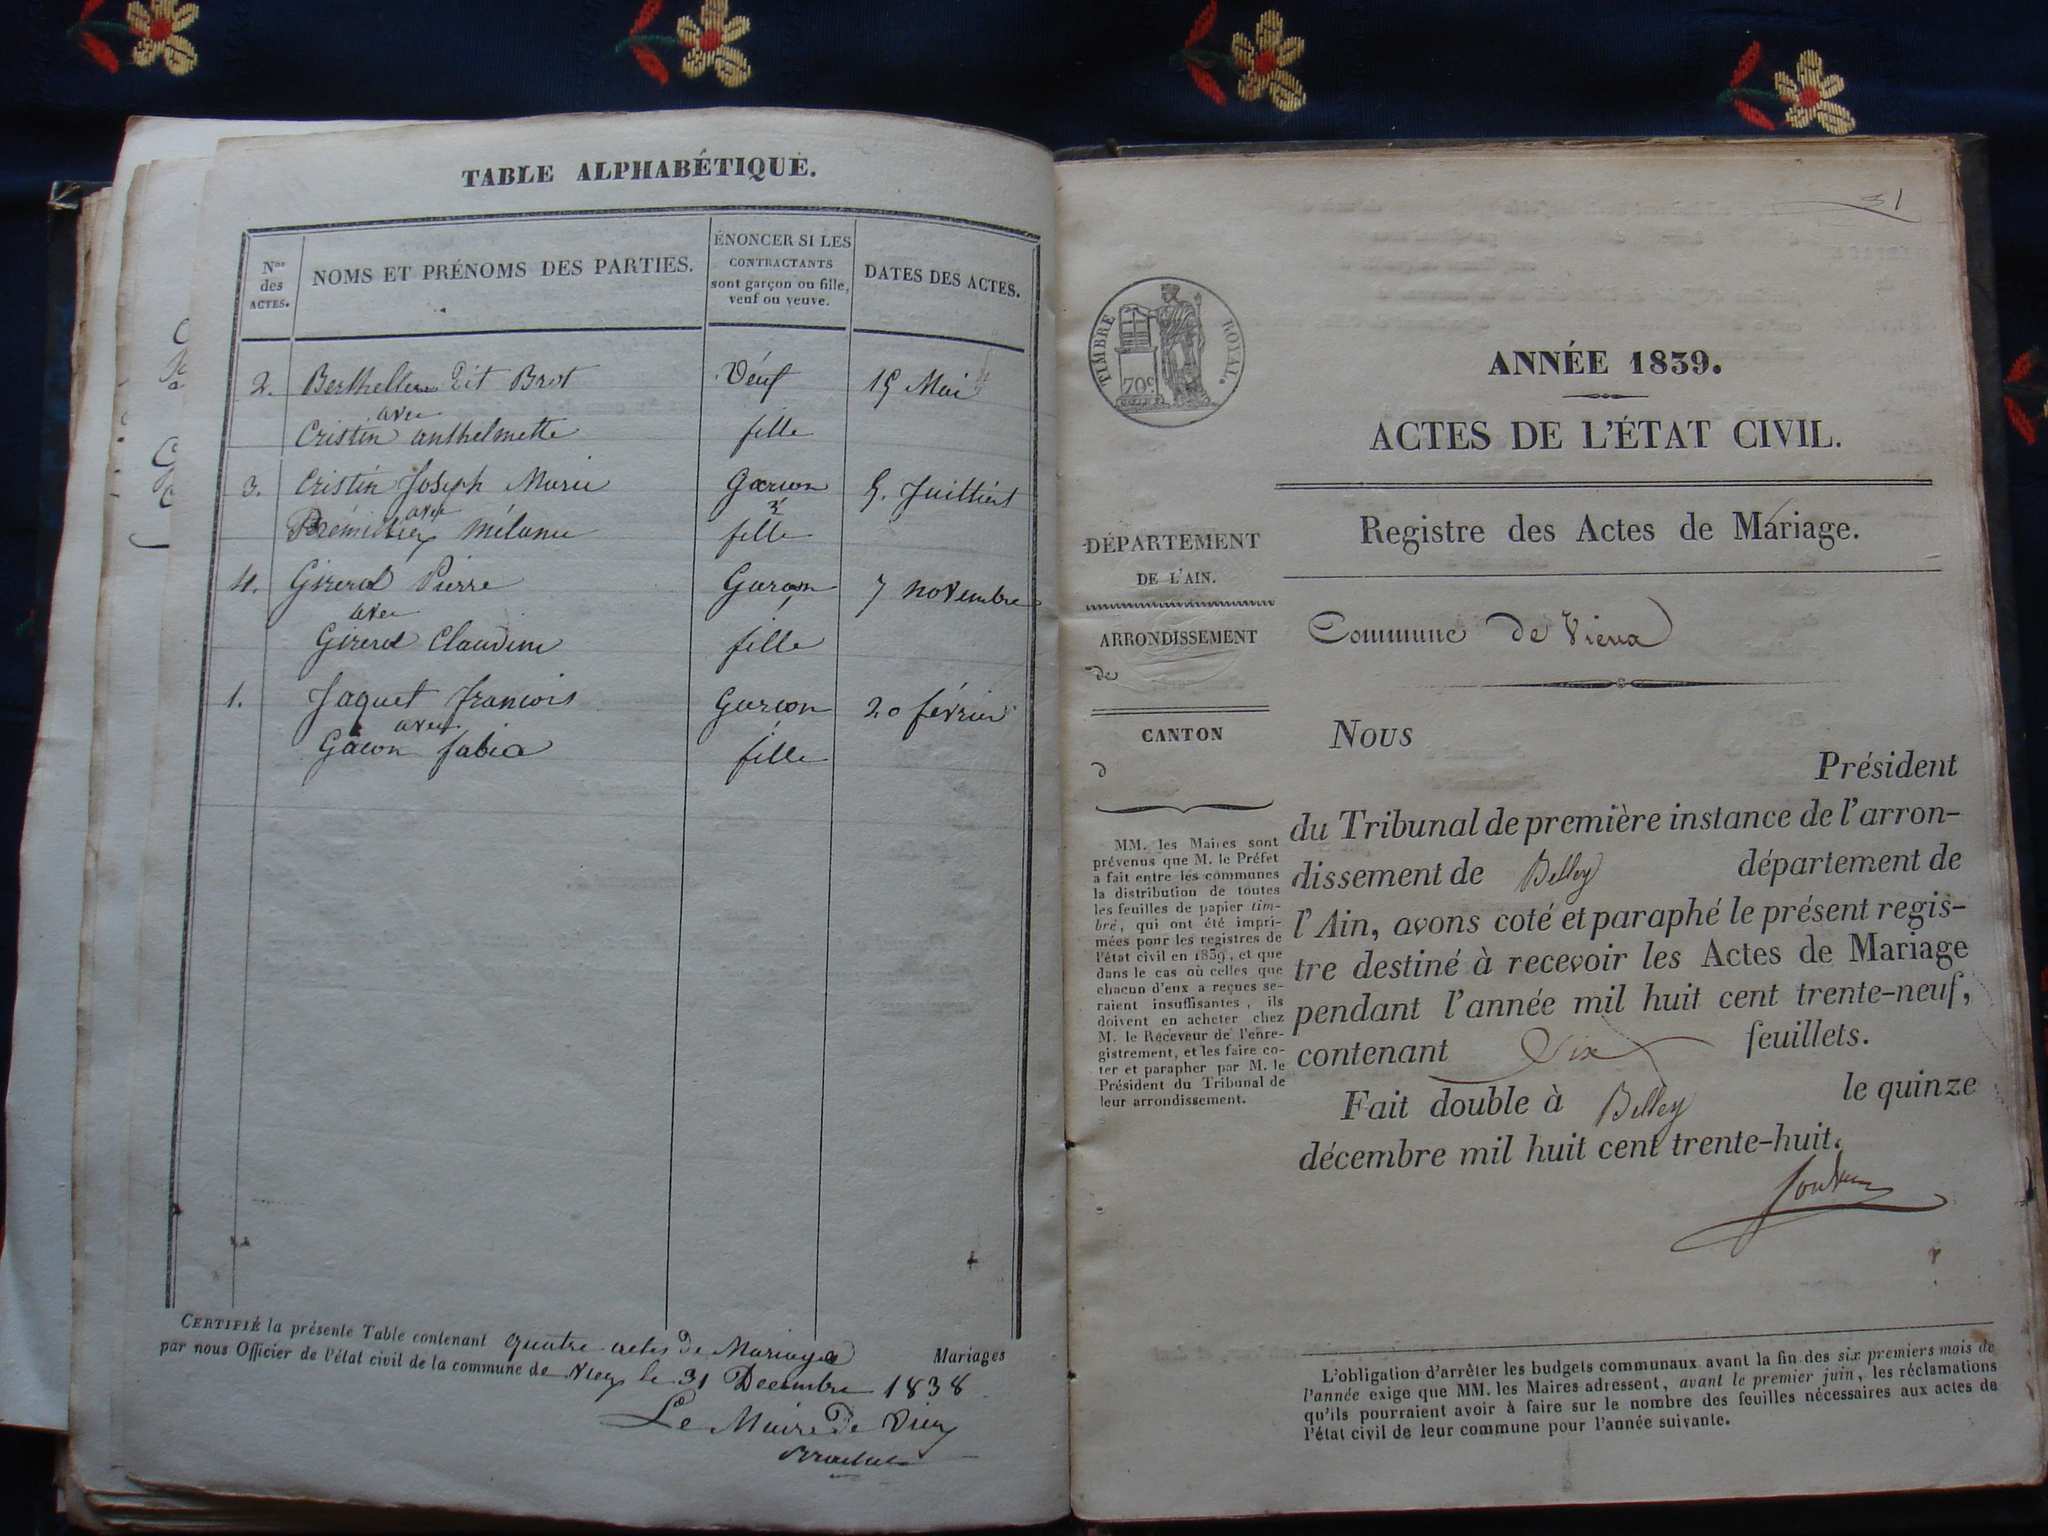 TABLE ALPHABÉTIQUE.
Nos des ACTES.
NOMS ET PRÉNOMS DES PARTIES.
ÉNONCER SI LES CONTRACTANTS sont garçon ou fille, veuf ou veuve.
DATES DES ACTES.
2. Berthellen dit Brot Veuf 15 Mai
avec
Cristin anthelmette fille
3. Cristin Joseph Marie Garcon 5. Juilliert
avec
Prémillieu Mélanie fille
4. Girerd Pierre Garcon 7 novembre
avec
Girerd Claudine fille
1. Jaquet francois Garcon 20 février
avec
Gacon fabia fille
CERTIFIÉ la présente Table contenant quatre actes de Mariage Mariages
par nous Officier de l'état civil de la commune de Vieu le 31 Decembre 1838
Le Maire de Vieu
31
TIMBRE ROYAL.
70c
ANNÉE 1839.
ACTES DE L'ÉTAT CIVIL.
Registre des Actes de Mariage.
DÉPARTEMENT
DE L'AIN.
ARRONDISSEMENT
de
CANTON
d
Commune de Vieux
MM. les Maires sont
prévenus que M. le Préfet
a fait entre les communes
la distribution de toutes
les feuilles de papier tim-
bré, qui ont été impri-
mées pour les registres de
l'état civil en 1839, et que
dans le cas où celles que
chacun d'eux a reçues se-
raient insuffisantes, ils
doivent en acheter chez
M. le Receveur de l'enre-
gistrement, et les faire co-
ter et parapher par M. le
Président du Tribunal de
leur arrondissement.
Nous
Président
du Tribunal de première instance de l'arron-
dissement de Belley département de
l'Ain, avons coté et paraphé le présent regis-
tre destiné à recevoir les Actes de Mariage
pendant l'année mil huit cent trente-neuf,
contenant Six feuillets.
Fait double à Belley le quinze
décembre mil huit cent trente-huit.
L'obligation d'arrêter les budgets communaux avant la fin des six premiers mois de
l'année exige que MM. les Maires adressent, avant le premier juin, les réclamations
qu'ils pourraient avoir à faire sur le nombre des feuilles nécessaires aux actes de
l'état civil de leur commune pour l'année suivante.